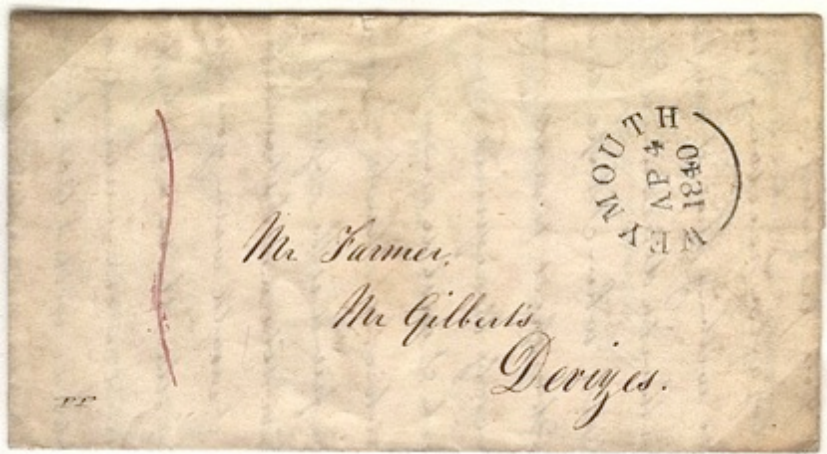 WEYMOUTH
AP 4
1840
Mr Farmer,
Mr Gilbert's
Devizes.